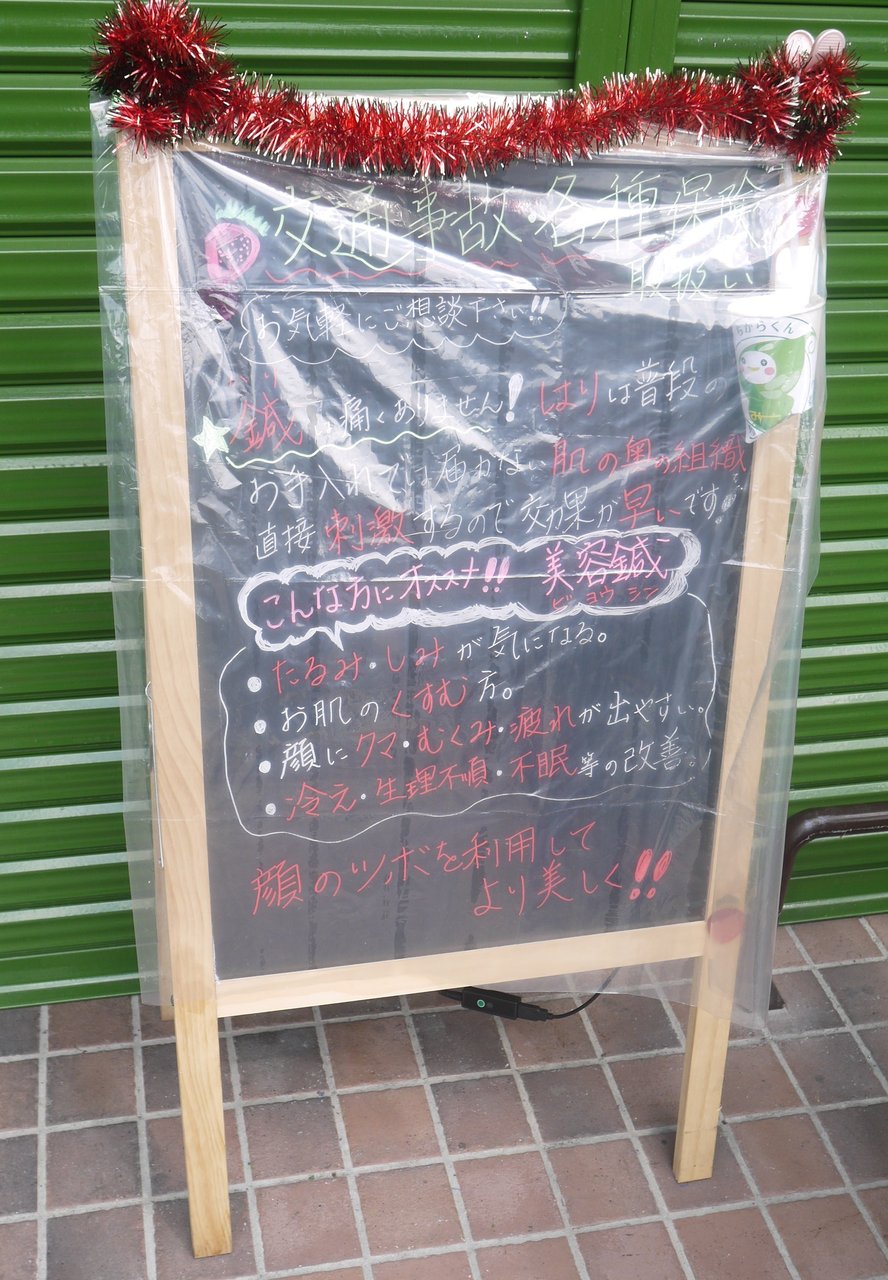 交通事故・各種保険
取扱い
お気軽にご相談下さい!!
ハリ
鍼は痛くありません! はりは普段の
お手入れでは届かない肌の奥の組織
直接刺激するので効果が早いです。
こんな方にオススメ!! 美容鍼
ビヨウシン
・たるみ・しみが気になる。
・お肌のくすむ方。
・顔にクマ・むくみ・疲れが出やすい。
・冷え・生理不順・不眠等の改善。
顔のツボを利用して
より美しく!!
ちからくん